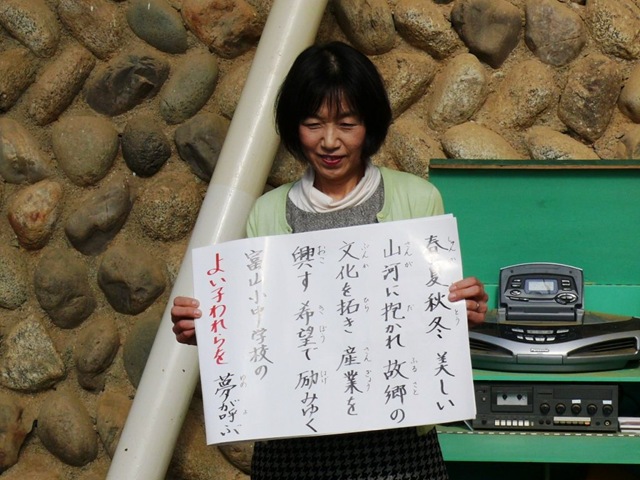 春夏秋冬 美しい
山河に抱かれ 故郷の
文化を拓き 産業を
興す 希望で 励みゆく
富山小中学校の
よい子われらを 夢が呼ぶ